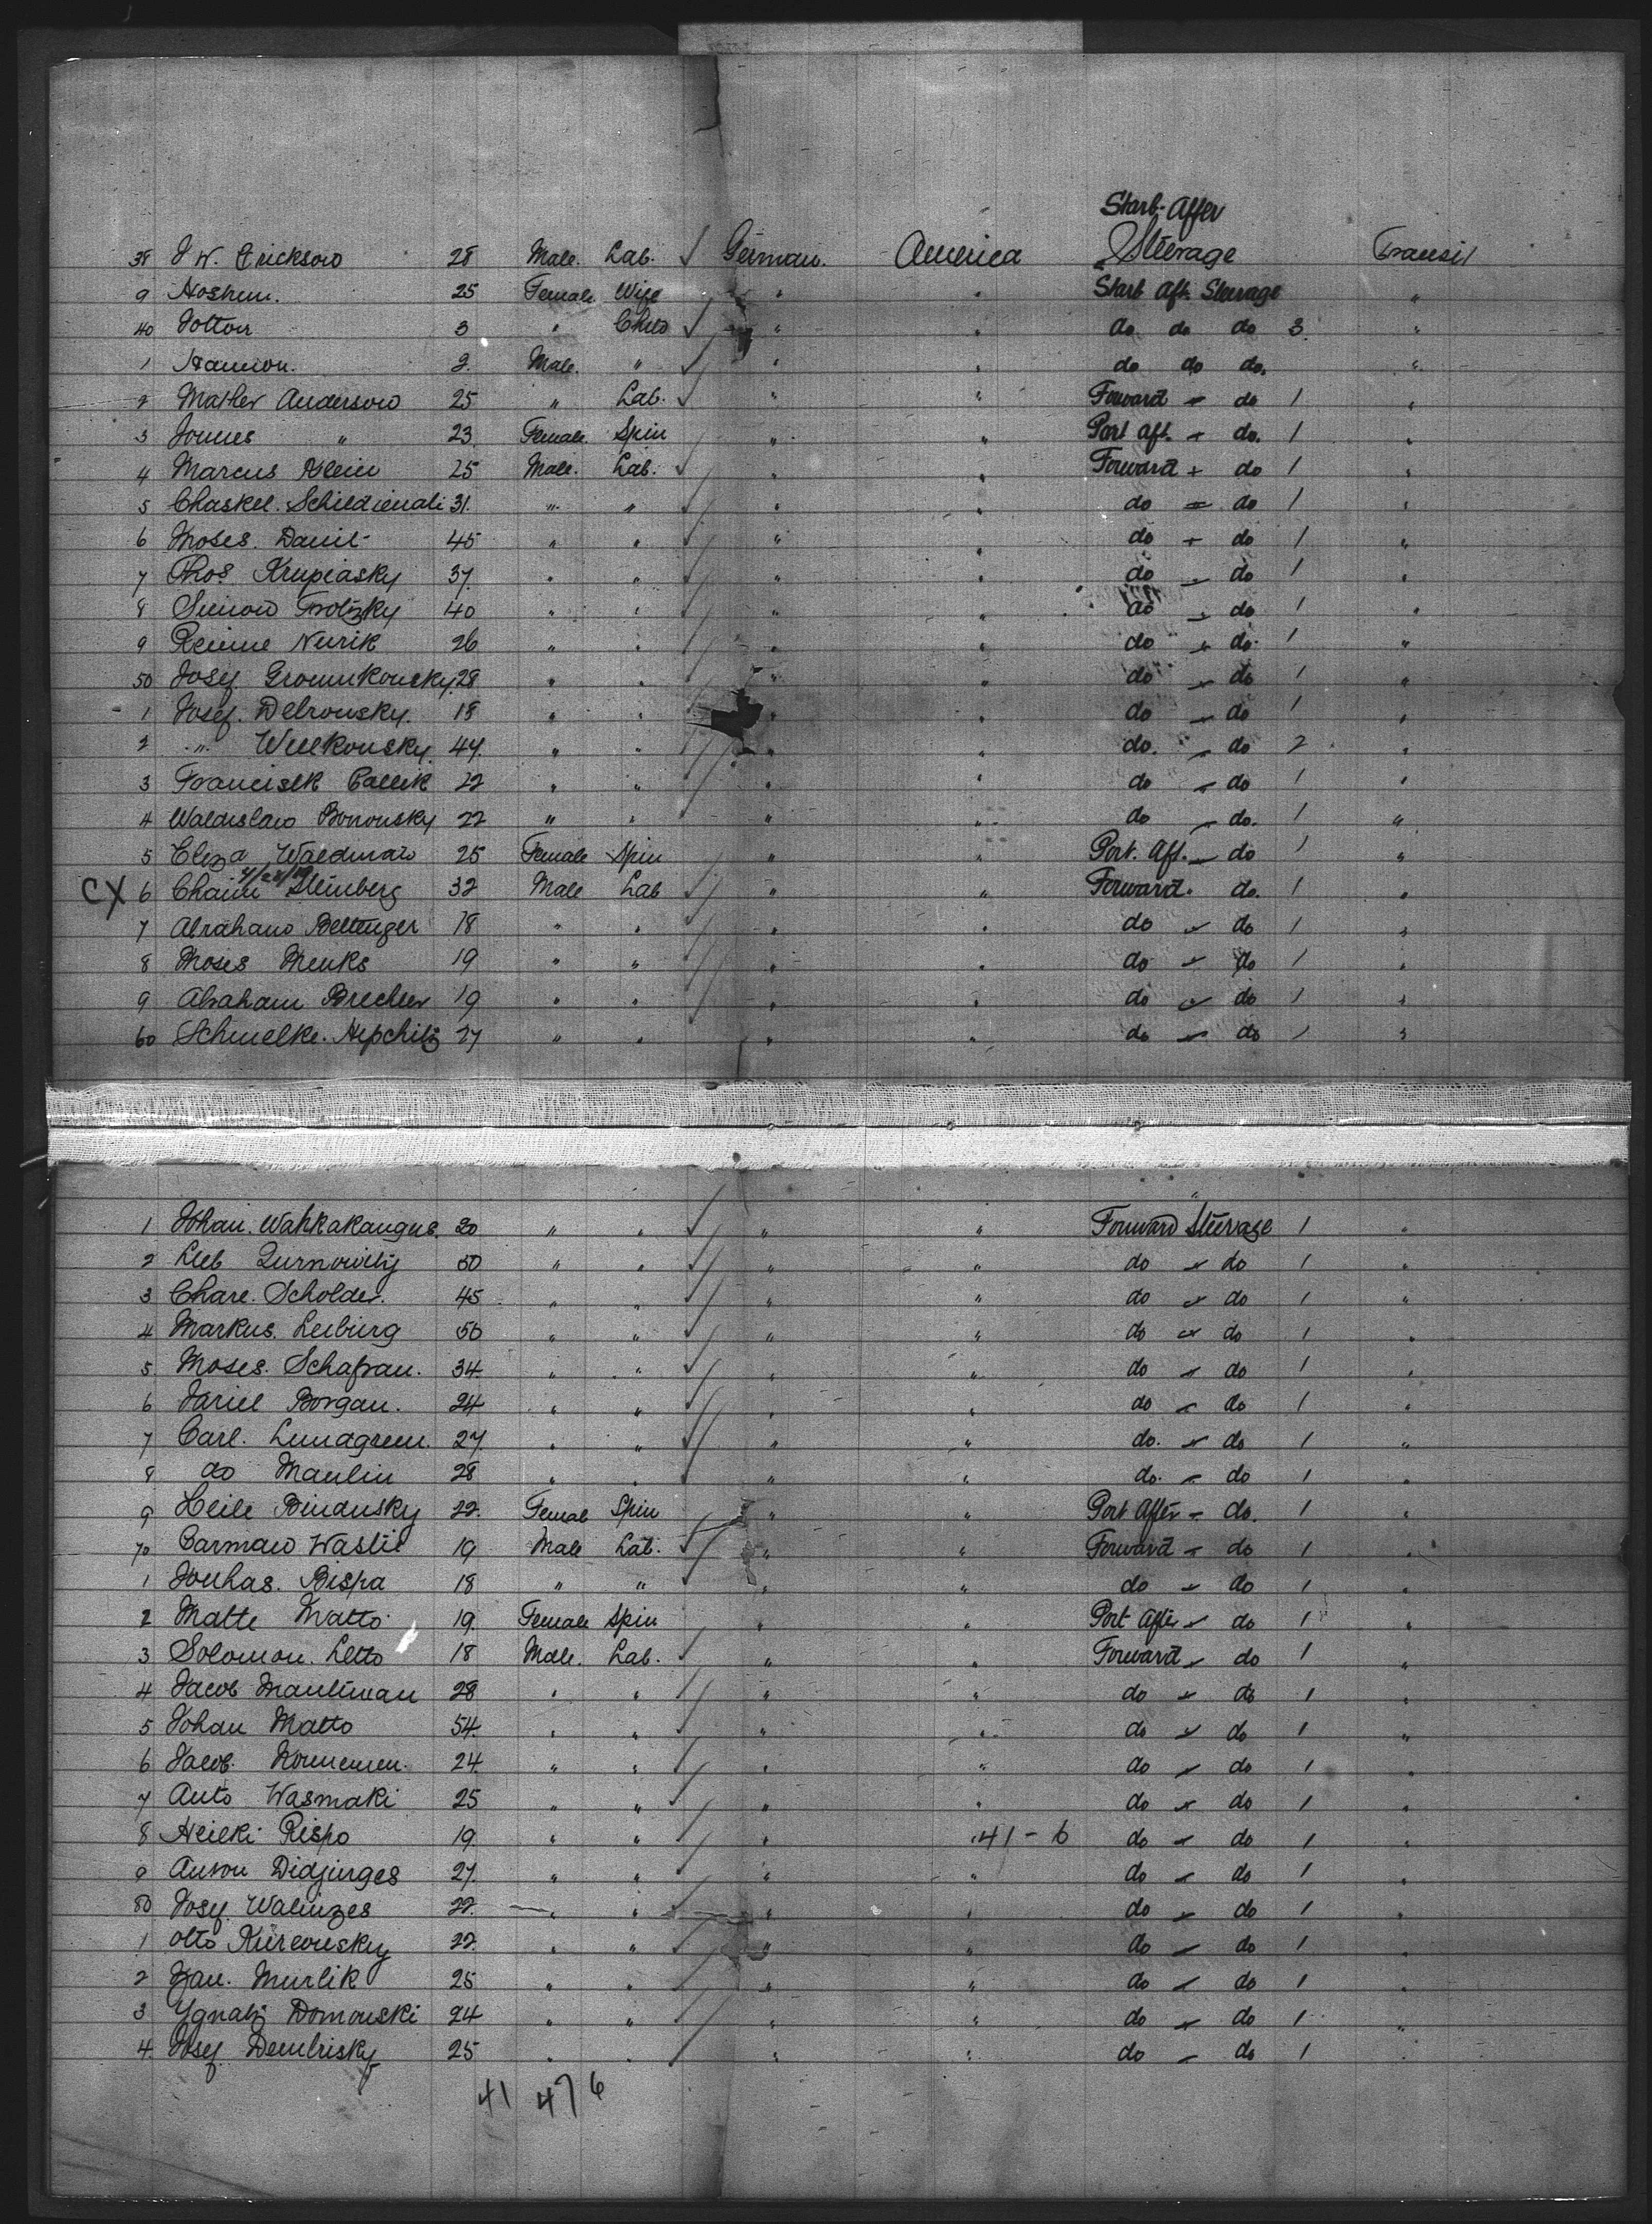 Starb. After
38 J W. Erickson 28 Male. Lab. ✓ German. America Steerage Transit
9 Hoshem. 25 Female Wife " " Starb Aft. Steerage "
40 Jotton 3 " Child ✓ " " do do do 3. "
1 Hamion. 2. Male. " ✓ " " do do do. "
2 Mather Anderson 25 " Lab. ✓ " " Forward " do 1 "
3 Jonnes " 23. Female. Spin " " Port aft. " do. 1 "
4 Marcus Klein 25 Male. Lab. ✓ " " Forward " do 1 "
5 Chaskel. 31. " " ✓ " " do " do 1 "
6 Moses. Daniel 45 " " ✓ " " do " do 1 "
7 Thos Krupiasky 37. " " ✓ " " do " do 1 "
8 Simon Trotzky 40 " " ✓ " " do " do 1 "
9 Nurik 26 " " ✓ " " do " do. 1 "
50 Josef. 28 " " ✓ " " do " do 1 "
1 Josef. Delronsky. 18 " " ✓ " " do " do 1 "
2 " Wilkonsky. 44. " " ✓ " " do. " do 2 "
3 Francisek Callik 22 " " ✓ " " do " do 1 "
4 Waldislaw Bononsky 22 " " " " do " do. 1 "
5 Eliza Waldman 25 Female Spin " " Port. Aft. " do 1 "
CX 6 Chaim Steinberg 32 Male Lab ✓ " " Forward. do. 1 "
7 Abraham Bellinger 18 " " ✓ " " do " do 1 "
8 Moses Menks 19 " " ✓ " " do " do 1 "
9 Abraham Brecher 19 " " ✓ " " do " do 1 "
60 Schmelke. Hepchitz 27 " " " " do " do 1 "
1 Johan. Wahkakangus. 20 " " ✓ " " Forward Steerage 1 "
2 Leib Zurnowitz 50 " " ✓ " " do " do 1 "
3 Chare. Scholder. 45 " " ✓ " " do " do 1 "
4 Markus. Leiburg 50 " " ✓ " " do " do 1 "
5. Moses. Schafran. 34. " " ✓ " " do " do 1 "
6 Jariel Borgan. 24 " " ✓ " " do " do 1 "
7 Carl. Lundgreen. 27. " " ✓ " " do. " do 1 "
8 do Maulin 28 " " ✓ " " do. " do 1 "
9 Leile Binansky 22. Femal Spin " " Port After " do. 1 "
70 Carman Waslie 19 Male Lab. ✓ " " Forward " do 1 "
1 Jouhas. Bispa 18 " " ✓ " " do " do 1 "
2 Matte Matto 19. Female Spin " " Port After " do 1 "
3 Solomon. Letto 18 Male. Lab. ✓ " " Forward " do 1 "
4 Jacob Maultman 28 " " ✓ " " do " do 1 "
5 Johan Matto 54. " " ✓ " " do " do 1 "
6 Jacob. 24. " " ✓ " " do " do 1 "
7 Anto Wasmaki 25 " " ✓ " " do " do 1 "
8 Heikki Rispo 19. " " ✓ " 41-6 do " do 1 "
9 Anson Didjurges 27. " " ✓ " " do " do 1 "
80 Josef. Walinzes 22. " " ✓ " " do " do 1 "
1 Otto Kurconsky 22. " " ✓ " " do " do 1 "
2 Jan. Murlik 25 " " ✓ " " do " do 1 "
3 Ygnatz Domonski 24 " " ✓ " " do " do 1 "
4. Josef. Dembrisky 25 " " ✓ " " do " do 1 "
41 47 6